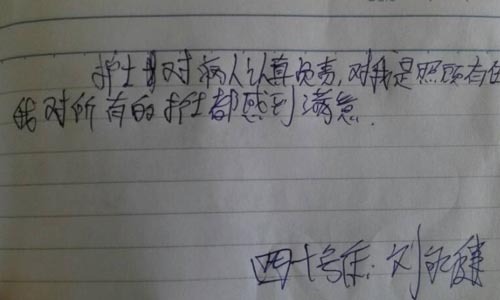 护士对病人认真负责,对我是照顾有佳
我对所有的护士都感到满意.
四十号床:刘永健